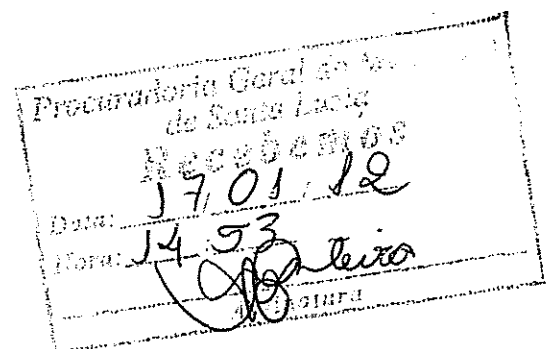 Procuradoria Geral do
de Santa Luzia
Recebemos
Data: 17/01/12
Hora: 14:53
Assinatura